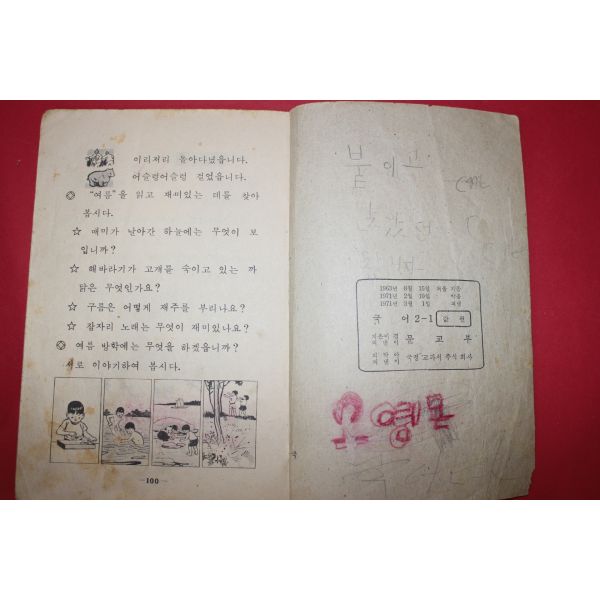 이리저리 돌아다녔읍니다.
어슬렁어슬렁 걸었읍니다.
◎ "여름"을 읽고 재미있는 데를 찾아
봅시다.
☆ 매미가 날아간 하늘에는 무엇이 보
입니까?
☆ 해바라기가 고개를 숙이고 있는 까
닭은 무엇인가요?
☆ 구름은 어떻게 재주를 부리나요?
☆ 잠자리 노래는 무엇이 재미있나요?
◎ 여름 방학에는 무엇을 하겠읍니까?
서로 이야기하여 봅시다.
—100—
1963년 8월 15일
1971년 2월 10일
1971년 3월 1일 펴냄
국 어 2-1 값 원
문 교 부
국정 교과서 주식 회사